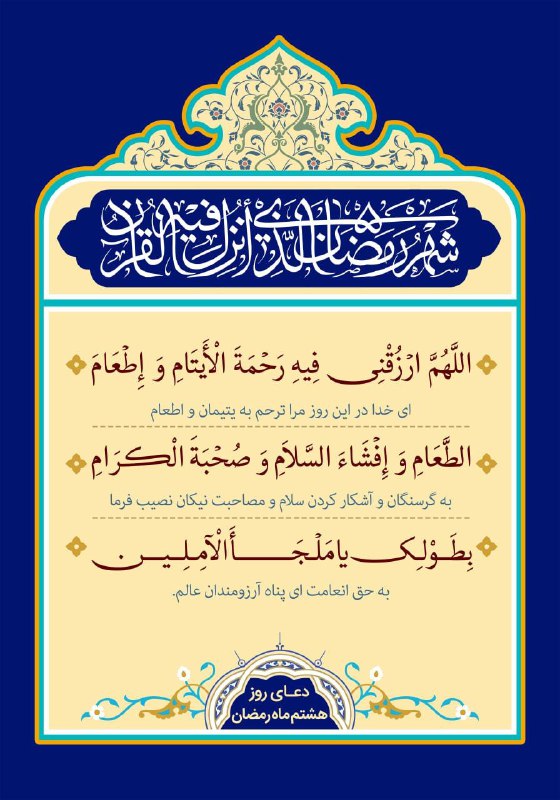 شهر رمضان الذی أنزل فیه القرآن
اللَّهُمَّ ارْزُقْنِی فِیهِ رَحْمَةَ الْأَیتَامِ وَ إِطْعَامَ
ای خدا در این روز مرا ترحم به یتیمان و اطعام
الطَّعَامِ وَ إِفْشَاءَ السَّلاَمِ وَ صُحْبَةَ الْکِرَامِ
به گرسنگان و آشکار کردن سلام و مصاحبت نیکان نصیب فرما
بِطَوْلِکَ یا مَلْجَأَ الْآمِلِین
به حق انعامت ای پناه آرزومندان عالم.
دعای روز
هشتم ماه رمضان